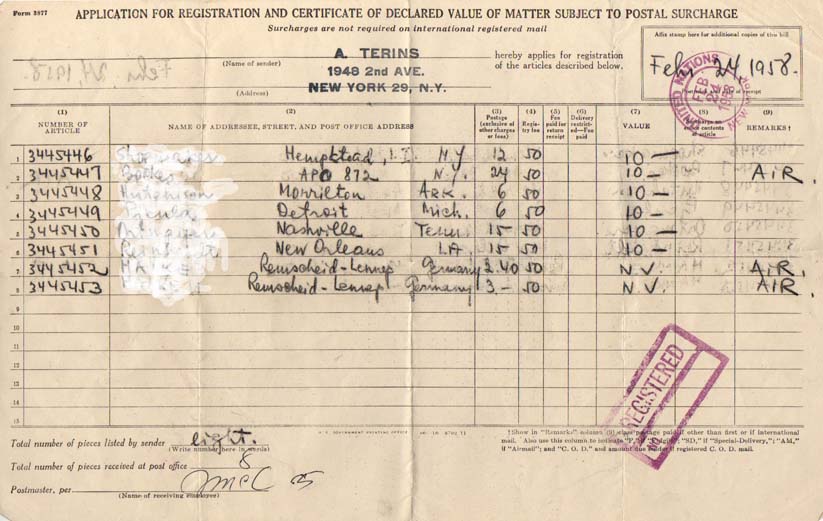 Form 3877
APPLICATION FOR REGISTRATION AND CERTIFICATE OF DECLARED VALUE OF MATTER SUBJECT TO POSTAL SURCHARGE
Surcharges are not required on international registered mail
A. TERINS
(Name of sender)
1948 2nd AVE.
NEW YORK 29, N.Y.
(Address)
hereby applies for registration
of the articles described below.
Affix stamp here for additional copies of this bill
Febr 24 1958.
UNITED NATIONS
FEB
24
1958
(1) NUMBER OF ARTICLE
(2) NAME OF ADDRESSEE, STREET, AND POST OFFICE ADDRESS
(3) Postage (exclusive of other charges or fees)
(4) Registry fee
(5) Fee paid for return receipt
(6) Delivery restricted—Fee paid
(7) VALUE
(8)
(9) REMARKS†
1 3445446 Hempstead, L.I. N.Y 12 50 10 —
2 3445447 APO 872 N.Y. 24 50 10 — AIR
3 3445448 Morrilton ARK. 6 50 10 —
4 3445449 Detroit Mich. 6 50 10 —
5 3445450 Nashville Tenn 15 50 10 —
6 3445451 New Orleans LA 15 50 10 —
7 3445452 Remscheid-Lennep Germany 2.40 50 N.V. AIR.
8 3445453 Remscheid-Lennep Germany 3.- 50 N.V. AIR.
9
10
11
12
13
14
15
REGISTERED
U. S. GOVERNMENT PRINTING OFFICE
Total number of pieces listed by sender eight.
(Write number here in words)
Total number of pieces received at post office 8
Postmaster, per
(Name of receiving employee)
†Show in "Remarks" column (9) postage paid if other than first or if international
mail. Also use this column to indicate "SD," if "Special-Delivery,"; "AM,"
if "Airmail"; and "C. O. D." and amount due if registered C. O. D. mail.